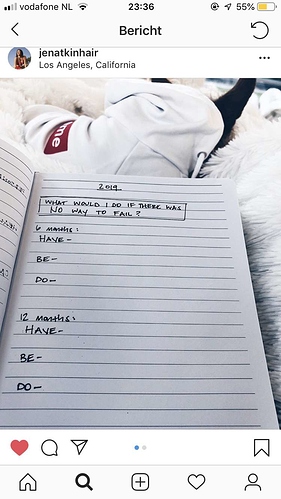 vodafone NL
23:36
55%
Bericht
jenatkinhair
Los Angeles, California
me
2019
WHAT WOULD I DO IF THERE WAS
NO WAY TO FAIL?
6 months:
HAVE-
BE-
DO-
12 months:
HAVE-
BE-
DO-